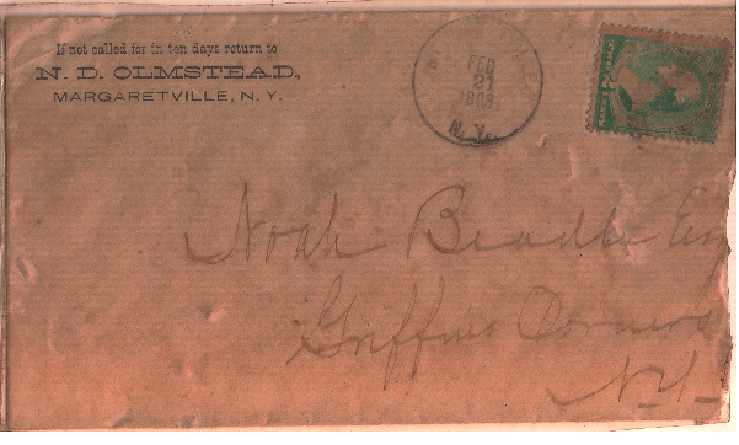 If not called for in ten days return to
N. D. OLMSTEAD,
MARGARETVILLE, N. Y.
FEB
N. Y.
Noah Beadle Esq
Griffins Corners
N.Y.